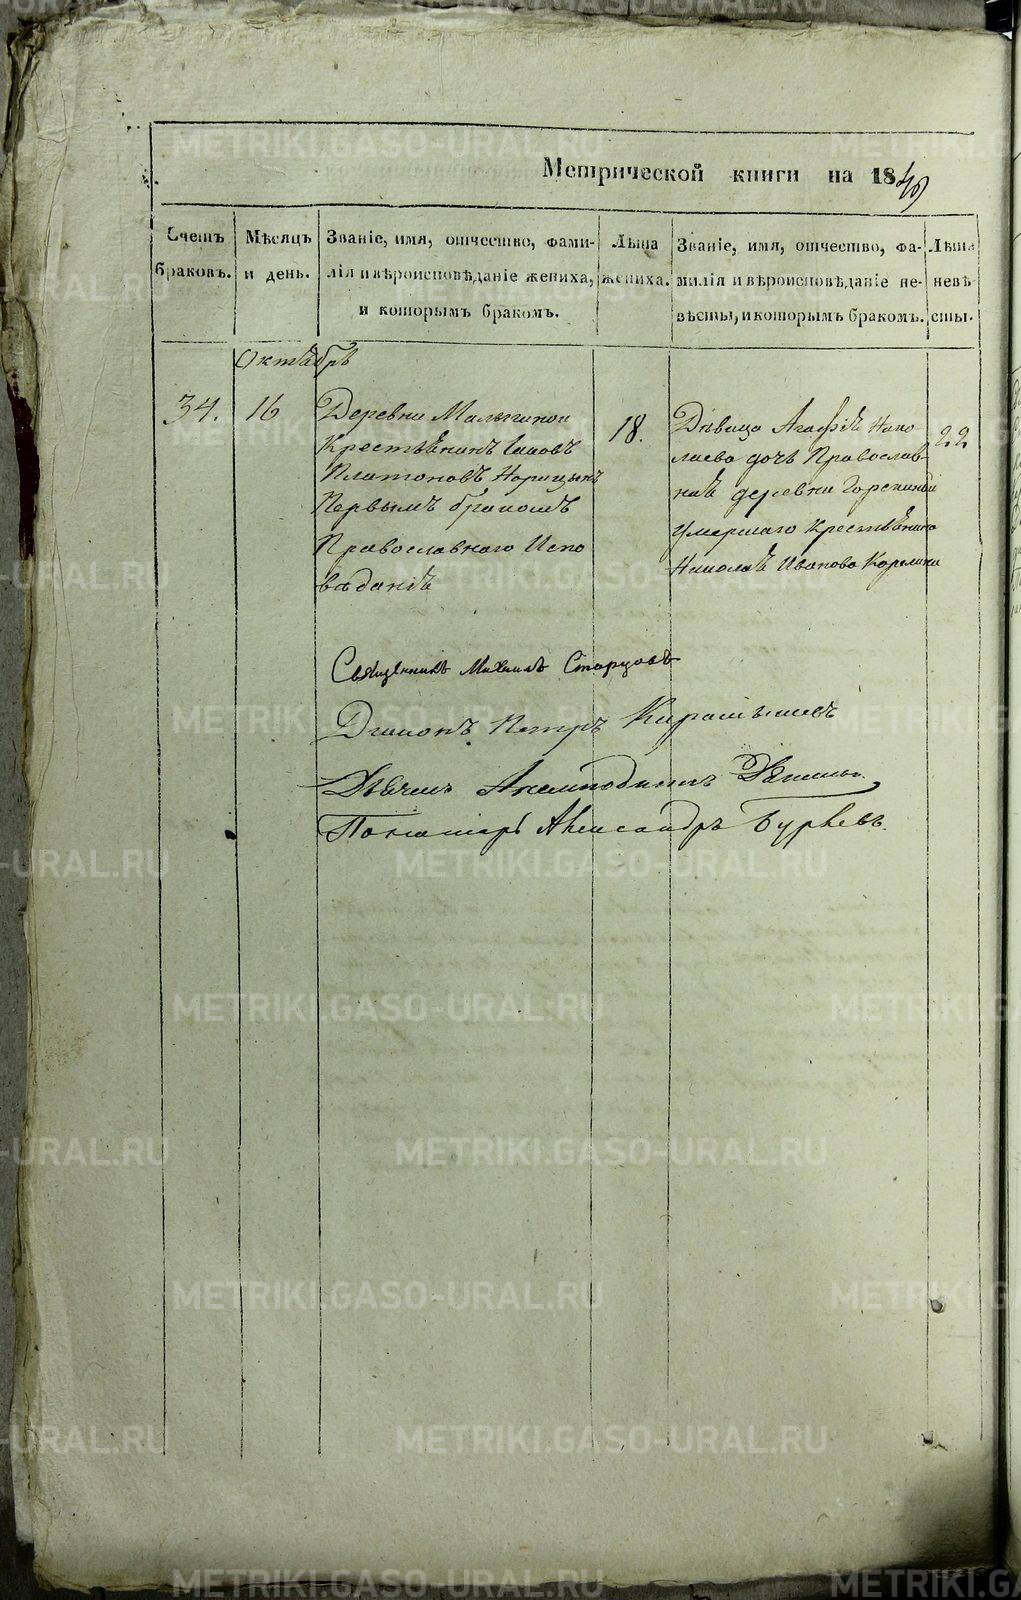 Метрической книги на 18
Счетъ браковъ.
Мѣсяцъ и день.
Званіе, имя, отчество, фами-
лія и вѣроисповѣданіе жениха,
и которымъ бракомъ.
Лѣта
жениха.
Званіе, имя, отчество, фа-
милія и вѣроисповѣданіе не-
вѣсты, и которымъ бракомъ.
Лѣта
невѣ-
сты.
Октябрь
34.
16
Деревни
Крестьянинъ
Платоновъ
Первымъ бракомъ
Православнаго Испо
вѣданія
18.
Дѣвица Агафія Нико
лаева дочь Православ-
ная деревни
Умершаго Крестьянина
Николая Иванова Корелина
22
Священникъ Михаилъ Старцовъ
Діаконъ Петръ
Дьячекъ
Пономарь Александръ
METRIKI.GASO-URAL.RU